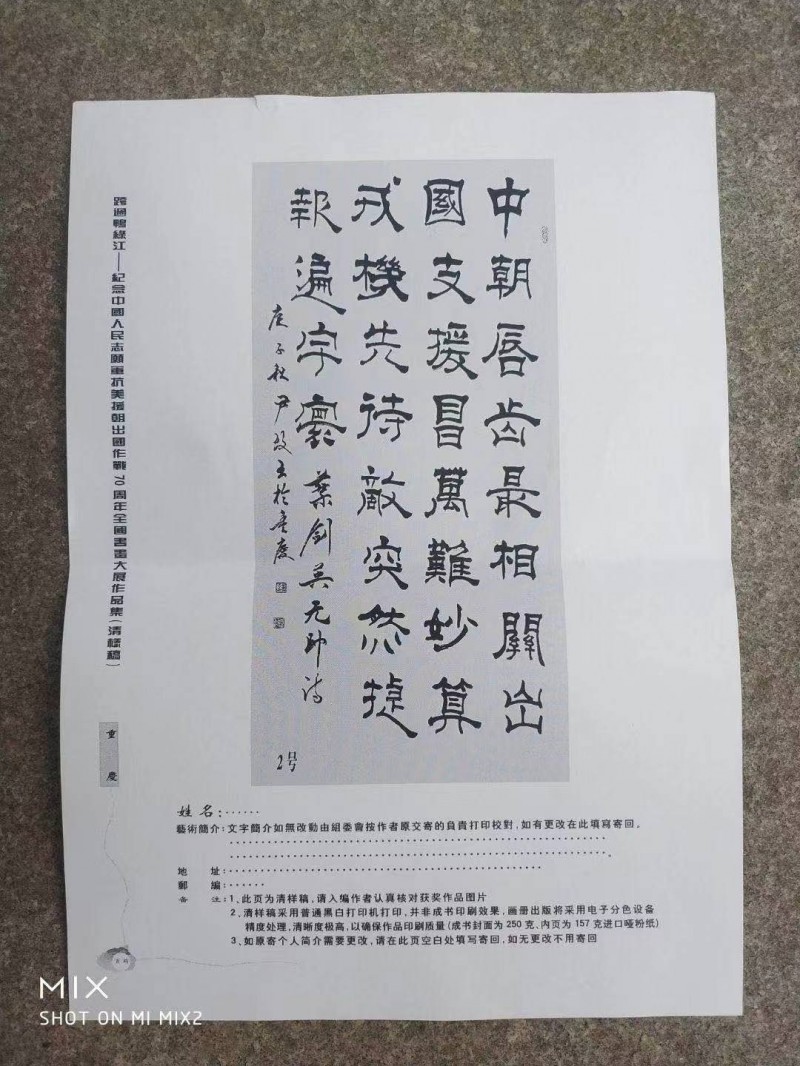 中朝唇齿最相關出
國支援冒萬難妙算
戎機先待敵突然捷
報遍宇寰 葉剑英元帅诗
庚子秋尹政书於重慶
2号
跨過鴨綠江——紀念中國人民志願軍抗美援朝出國作戰70周年全國書畫大展作品集(清樣稿)
重慶
姓名:······
藝術簡介:文字簡介如無改動由組委會按作者原交寄的負責打印校對,如有更改在此填寫寄回。
地 址:
郵 編:······
备 注:1、此页为清样稿,请入编作者认真核对获奖作品图片
2、清样稿采用普通黑白打印机打印,并非成书印刷效果,画册出版将采用电子分色设备
精度处理,清晰度极高,以确保作品印刷质量(成书封面为250克、内页为157克进口哑粉纸)
3、如原寄个人简介需要更改,请在此页空白处填写寄回,如无更改不用寄回
MIX
SHOT ON MI MIX2